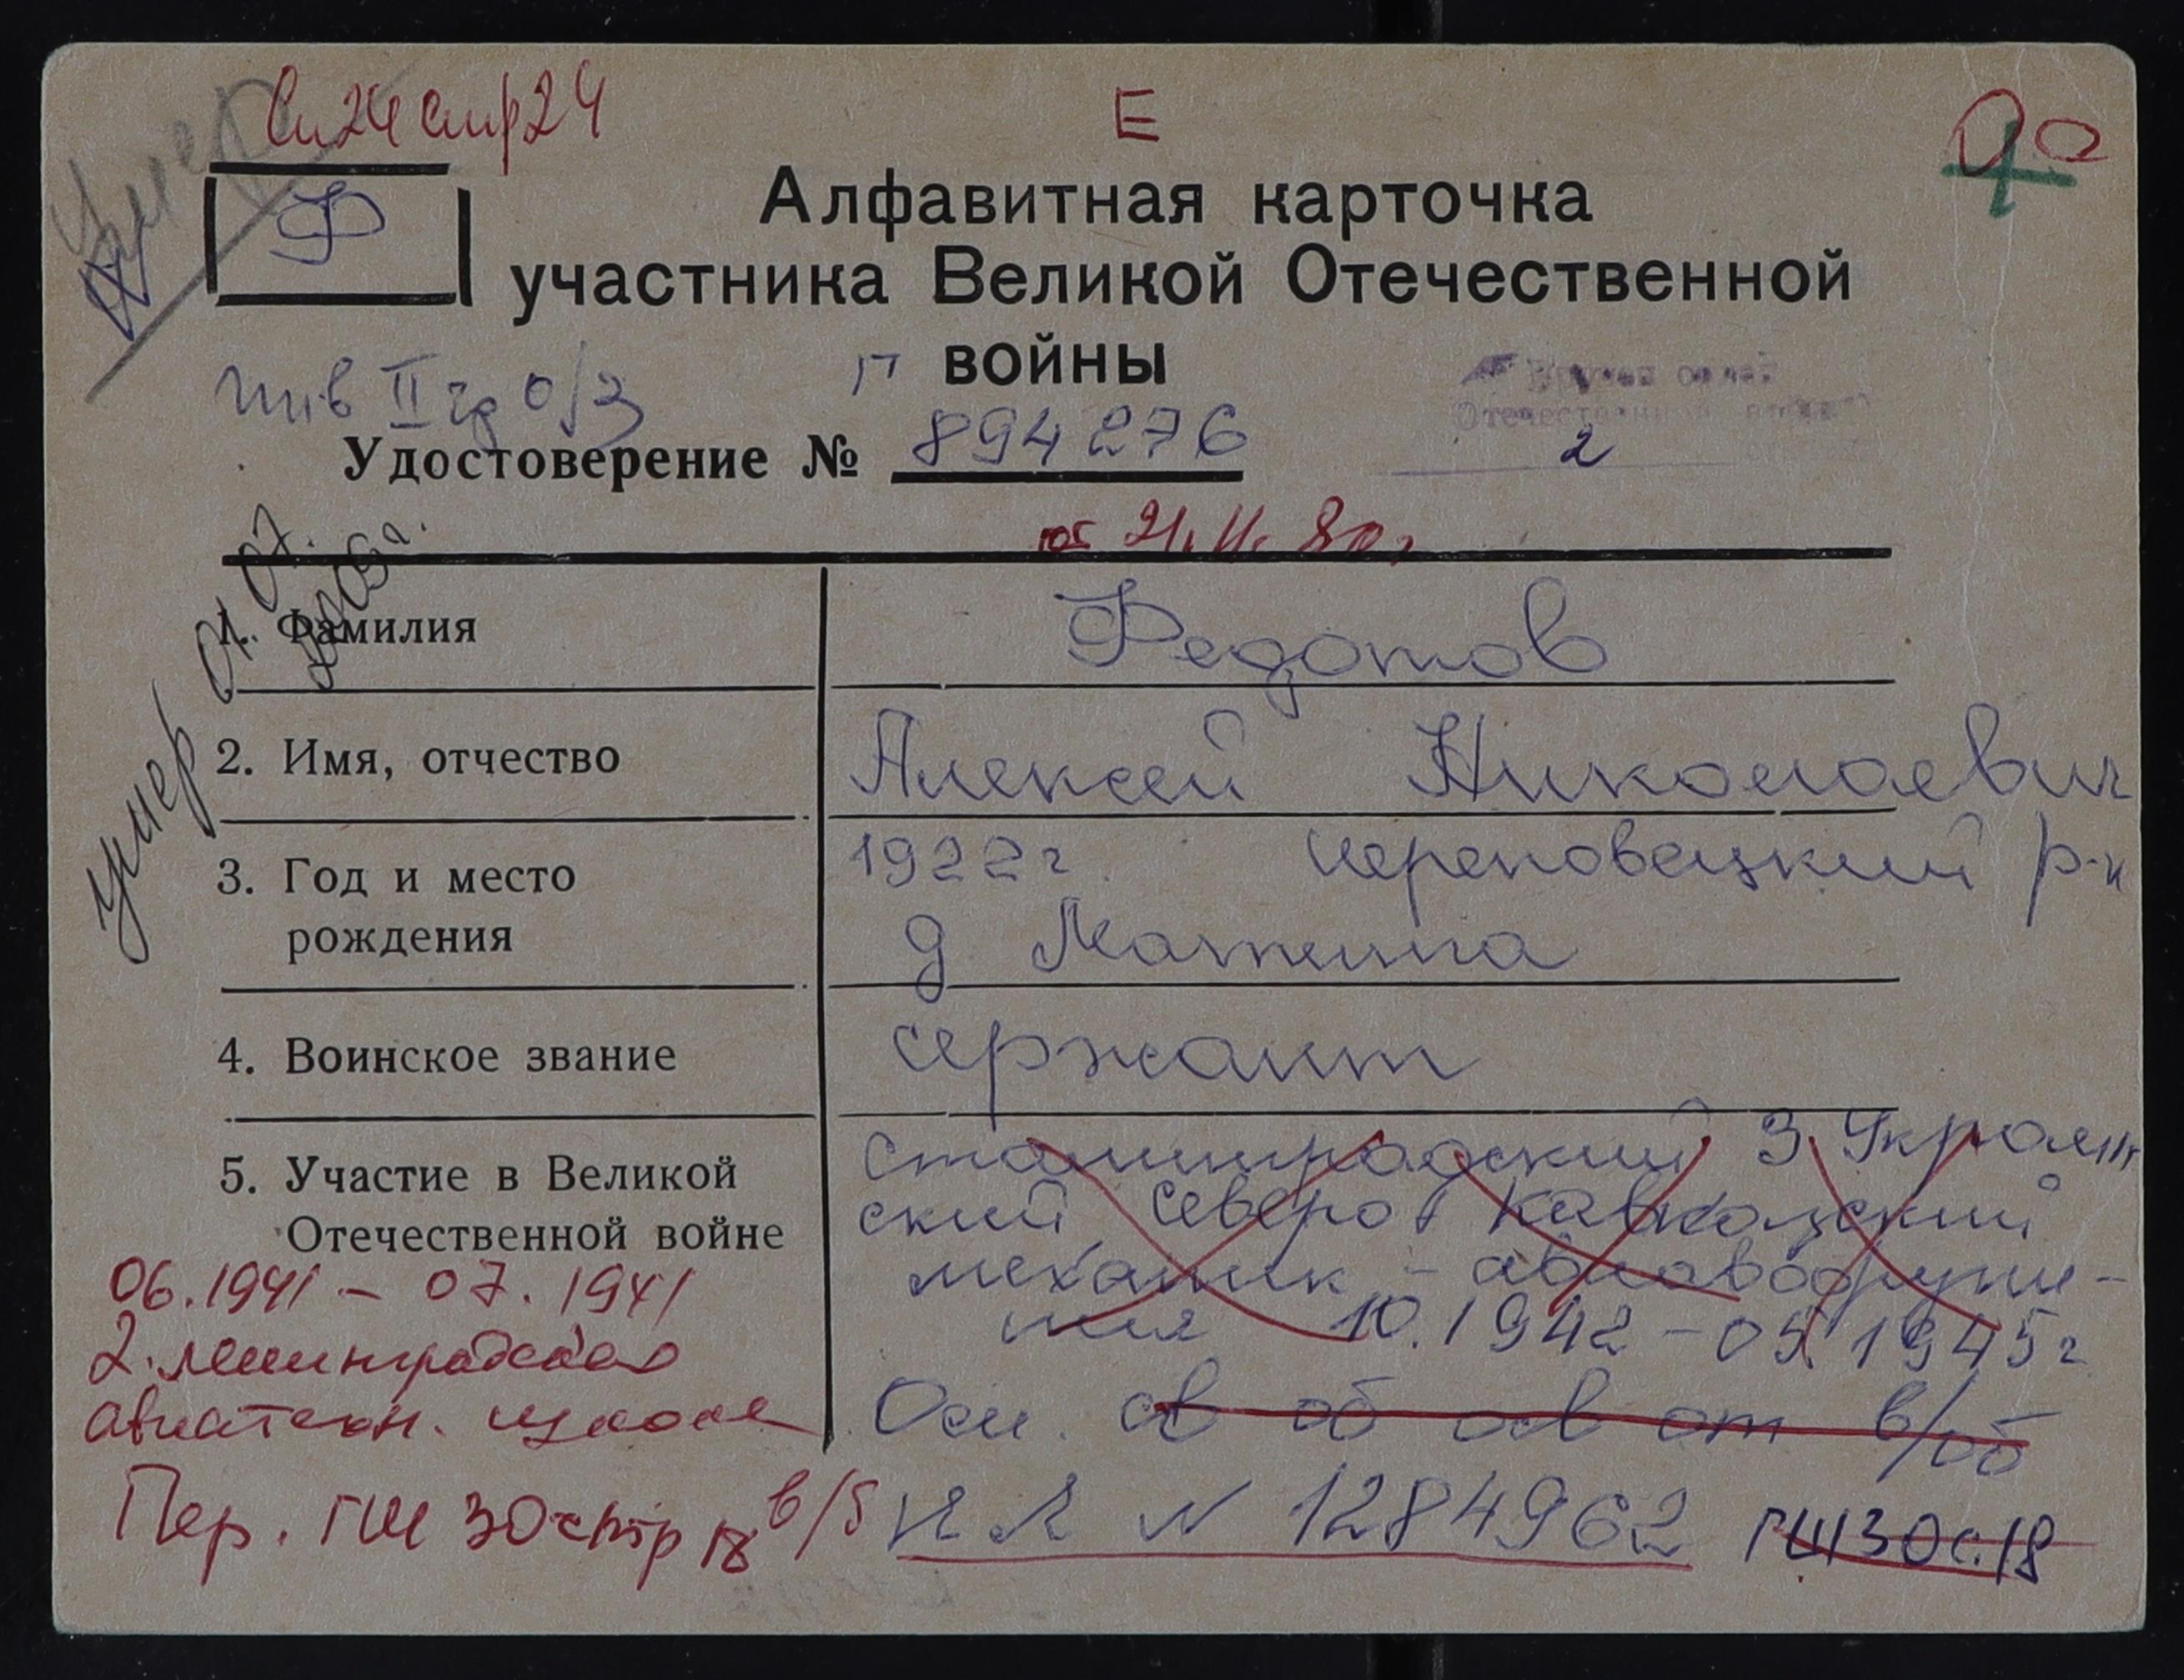 Сп 24 стр 24
Е
Умер
Ф
Алфавитная карточка
участника Великой Отечественной
войны
инв II гр о/з
П
Вручен орден
Отечественной войны
2
Удостоверение № 894276
от 21.11.80г
умер 01.07.
1. Фамилия Федотов
2. Имя, отчество Алексей Николаевич
3. Год и место 1922г Череповецкий р-н
рождения д
4. Воинское звание сержант
5. Участие в Великой Сталинградский 3 Украин
Отечественной войне ский Северо Кавказский
механик - авиавооруже-
ния 10.1942-05.1945г
06.1941 - 07.1941
2. Ленинградская
авиатехн. школа
Осн. св об осв от в/об
Пер. ГШ 30 стр 18 в/б
№ 1284962 ГШ30с.18